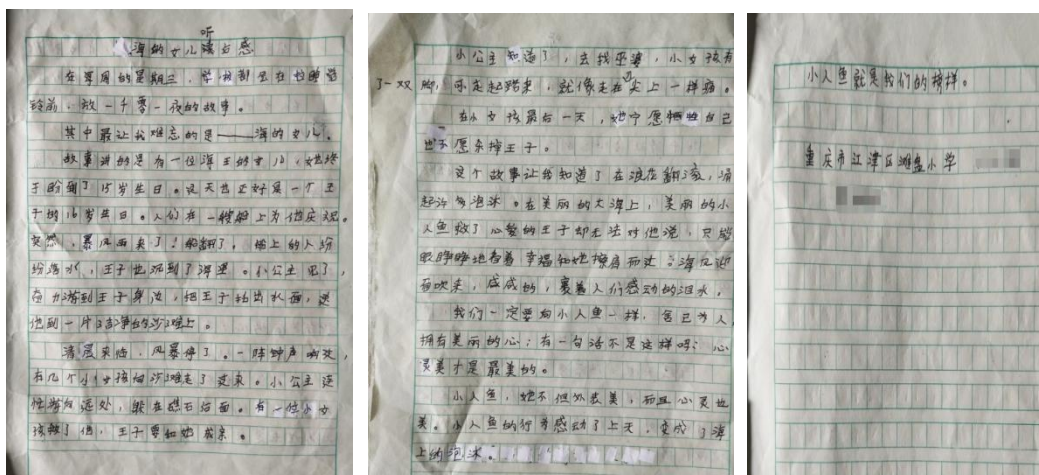 听
海的女儿读后感
在每周的星期三，学校都会在睡觉
铃前，放一千零一夜的故事。
其中最让我难忘的是——海的女儿。
故事讲的是有一位海王的女儿，她终
于盼到了15岁生日。这天也正好是一个王
子的16岁生日。人们在一艘船上为他庆祝。
突然，暴风雨来了！船翻了。船上的人纷
纷落水，王子也沉到了海里。小公主见了，
奋力游到王子身边，把王子托出水面，送
他到一片洁净的沙滩上。
清晨来临，风暴停了。一阵钟声响过，
有几个小女孩向沙滩走了过来。小公主连
忙游向远处，躲在礁石后面。有一位小女
孩救了他，王子要和她成亲。
小公主知道了，去找巫婆，小女孩有
了一双脚，可走起路来，就像走在刀尖上一样痛。
在小女孩最后一天，她宁愿牺牲自己
也不愿杀掉王子。
这个故事让我知道了在浪花翻滚，涌
起许多泡沫。在美丽的大海上，美丽的小
人鱼救了心爱的王子却无法对他说，只能
眼睁睁地看着幸福和她擦肩而过。海风迎
面吹来，咸咸的，裹着人们感动的泪水，
我们一定要向小人鱼一样，舍己为人
拥有美丽的心；有一句话不是这样吗：心
灵美才是最美的。
小人鱼，她不但外表美，而且心灵也
美。小人鱼的行为感动了上天，变成了海
上的泡沫。
小人鱼就是我们的榜样。
重庆市江津区滩盘小学